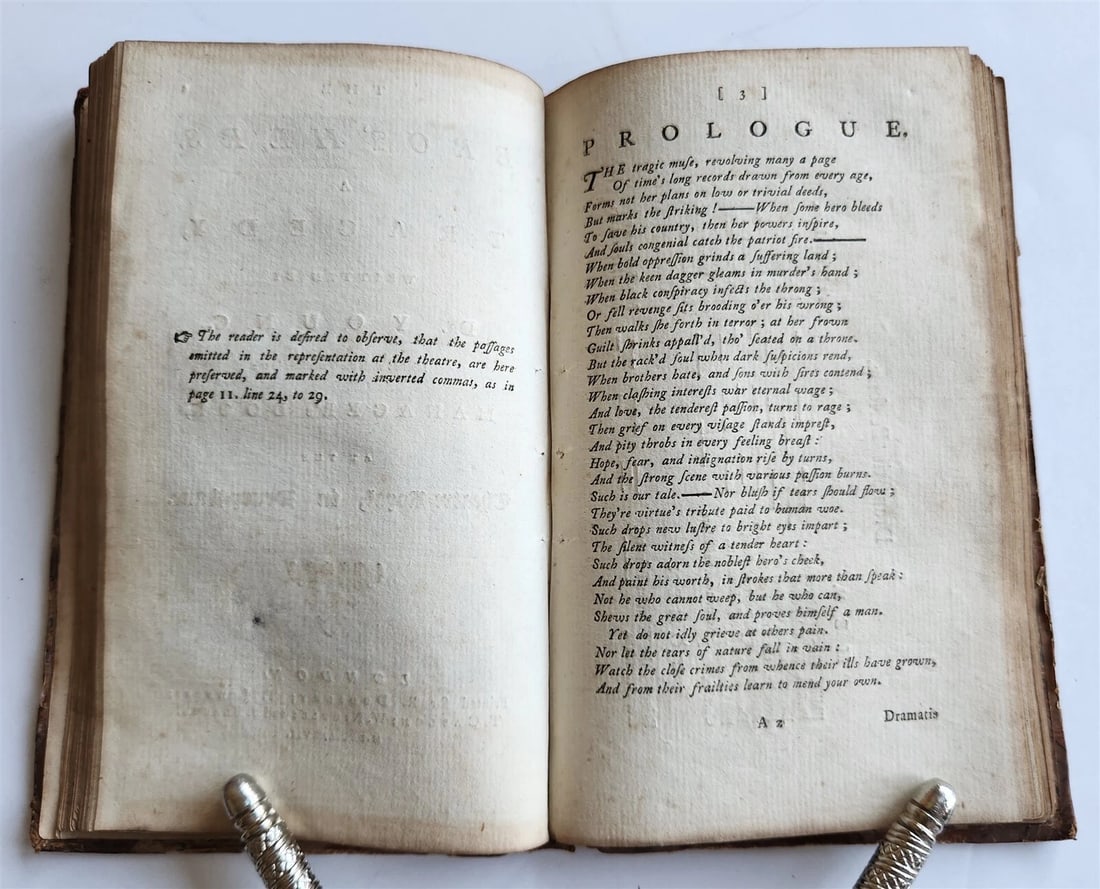 ☞ The reader is deſired to obſerve, that the paſſages
omitted in the repreſentation at the theatre, are here
preſerved, and marked with inverted commas, as in
page 11. line 24, to 29.
[ 3 ]
PROLOGUE.
THE tragic muſe, revolving many a page
Of time's long records drawn from every age,
Forms not her plans on low or trivial deeds,
But marks the ſtriking !——When ſome hero bleeds
To ſave his country, then her powers inſpire,
And ſouls congenial catch the patriot fire.——
When bold oppreſſion grinds a ſuffering land ;
When the keen dagger gleams in murder's hand ;
When black conſpiracy infects the throng ;
Or fell revenge ſits brooding o'er his wrong ;
Then walks ſhe forth in terror ; at her frown
Guilt ſhrinks appall'd, tho' ſeated on a throne.
But the rack'd ſoul when dark ſuſpicions rend,
When brothers hate, and ſons with ſires contend ;
When claſhing intereſts war eternal wage ;
And love, the tendereſt paſſion, turns to rage ;
Then grief on every viſage ſtands impreſt,
And pity throbs in every feeling breaſt :
Hope, fear, and indignation riſe by turns,
And the ſtrong ſcene with various paſſion burns.
Such is our tale.——Nor bluſh if tears ſhould flow ;
They're virtue's tribute paid to human woe.
Such drops new luſtre to bright eyes impart ;
The ſilent witneſs of a tender heart :
Such drops adorn the nobleſt hero's cheek,
And paint his worth, in ſtrokes that more than ſpeak :
Not he who cannot weep, but he who can,
Shews the great ſoul, and proves himſelf a man.
Yet do not idly grieve at others pain.
Nor let the tears of nature fall in vain :
Watch the cloſe crimes from whence their ills have grown,
And from their frailties learn to mend your own.
A 2
Dramatis